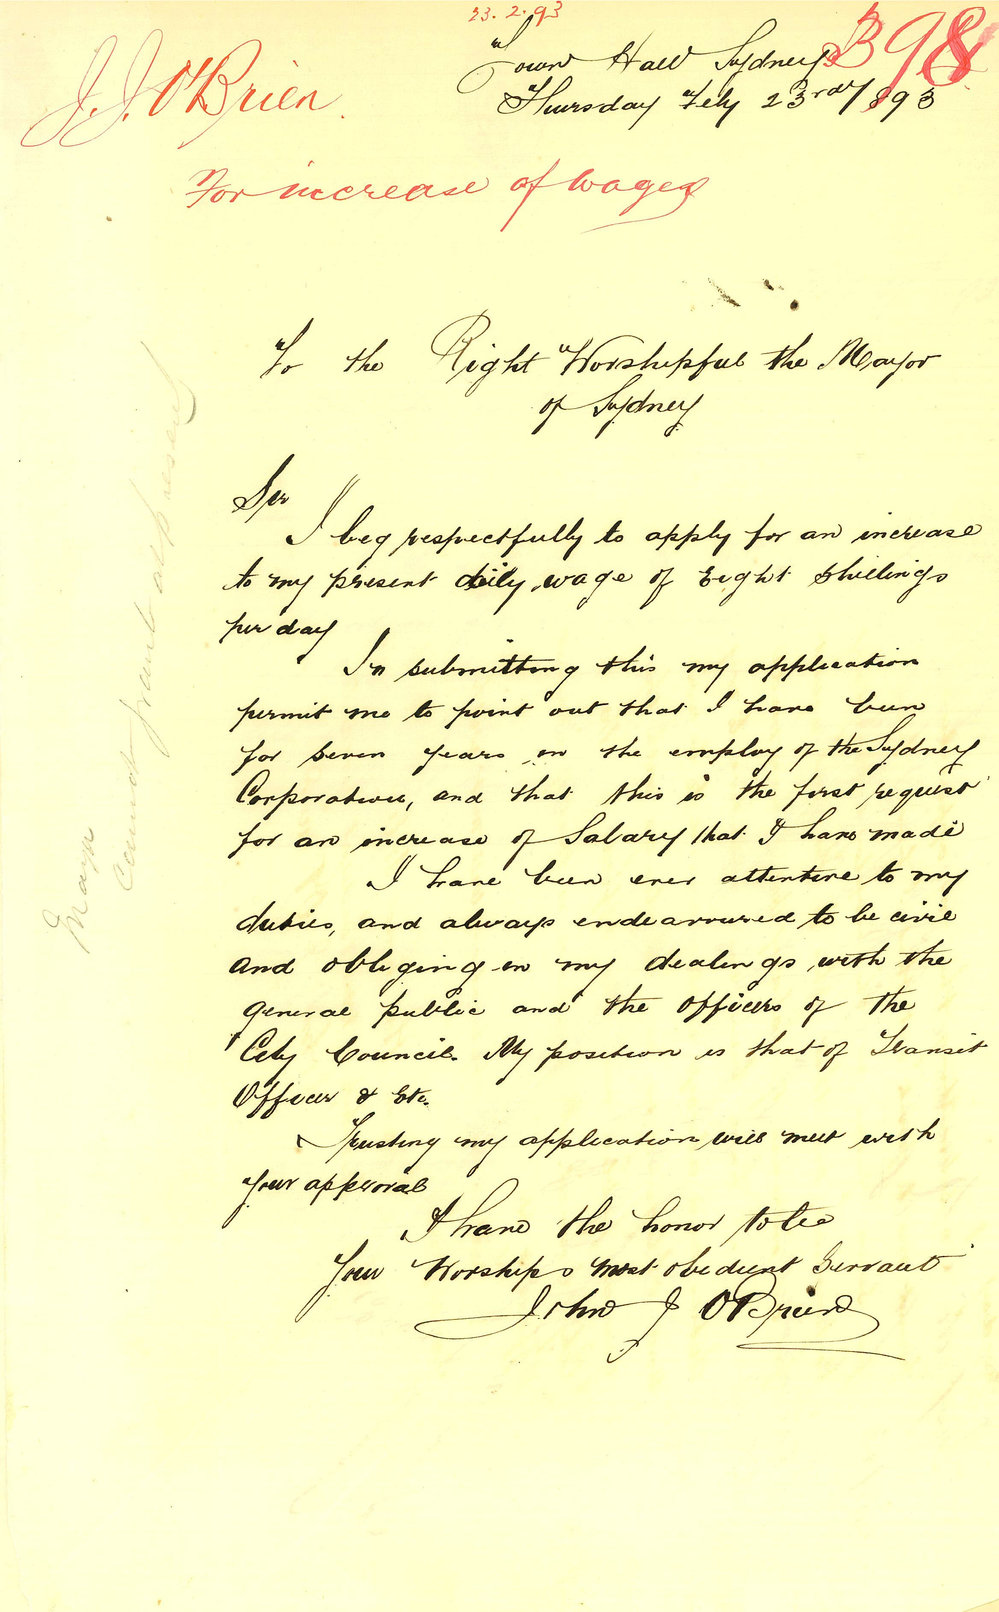 23.2.93
B 98
J. J. O'Brien
Town Hall Sydney
Thursday Feby 23rdy 1893
For increase of wages
To the Right Worshipful the Mayor
of Sydney
Sir
I beg respectfully to apply for an increase
to my present daily wage of Eight Shillings
per day
In submitting this my application
permit me to point out that I have been
for seven years in the employ of the Sydney
Corporation, and that this is the first request
for an increase of Salary that I have made
I have been ever attentive to my
duties, and always endeavoured to be civil
and obliging in my dealings with the
general public and the Officers of the
City Council. My position is that of Transit
Officer & Etc.
Trusting my application will meet with
your approval
I have the honor to be
Your Worships most obedient Servant
John J O'Brien
Cannot grant at present